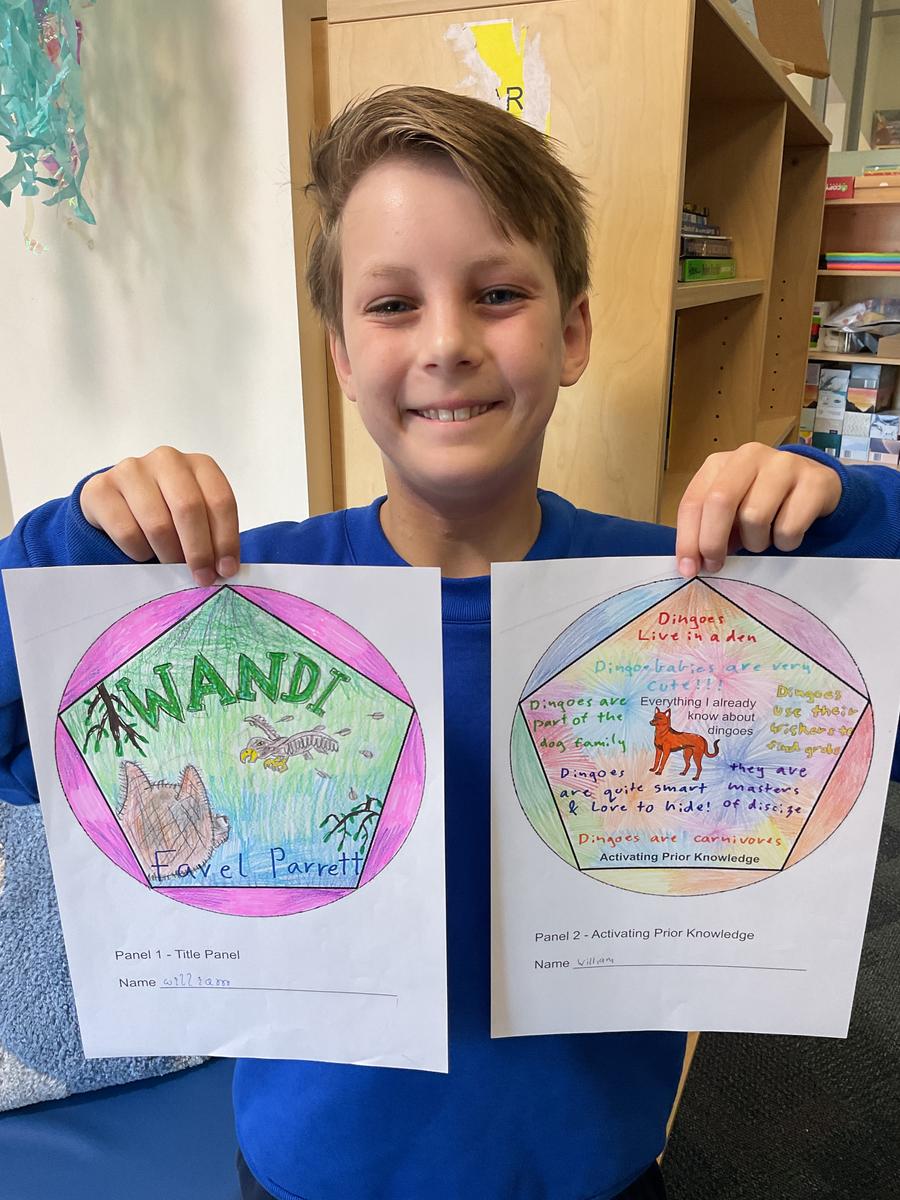 R
WANDI
Favel Parrett
Panel 1 - Title Panel
Name william
Dingoes
Live in a den
Dingoe babies are very
cute!!!
Dingoes are
part of the
dog family
Everything I already
know about
dingoes
Dingoes
use their
wiskers to
find grds
Dingoes
are quite smart
& Love to hide!
they are
masters
of discize
Dingoes are carnivores
Activating Prior Knowledge
Panel 2 - Activating Prior Knowledge
Name William